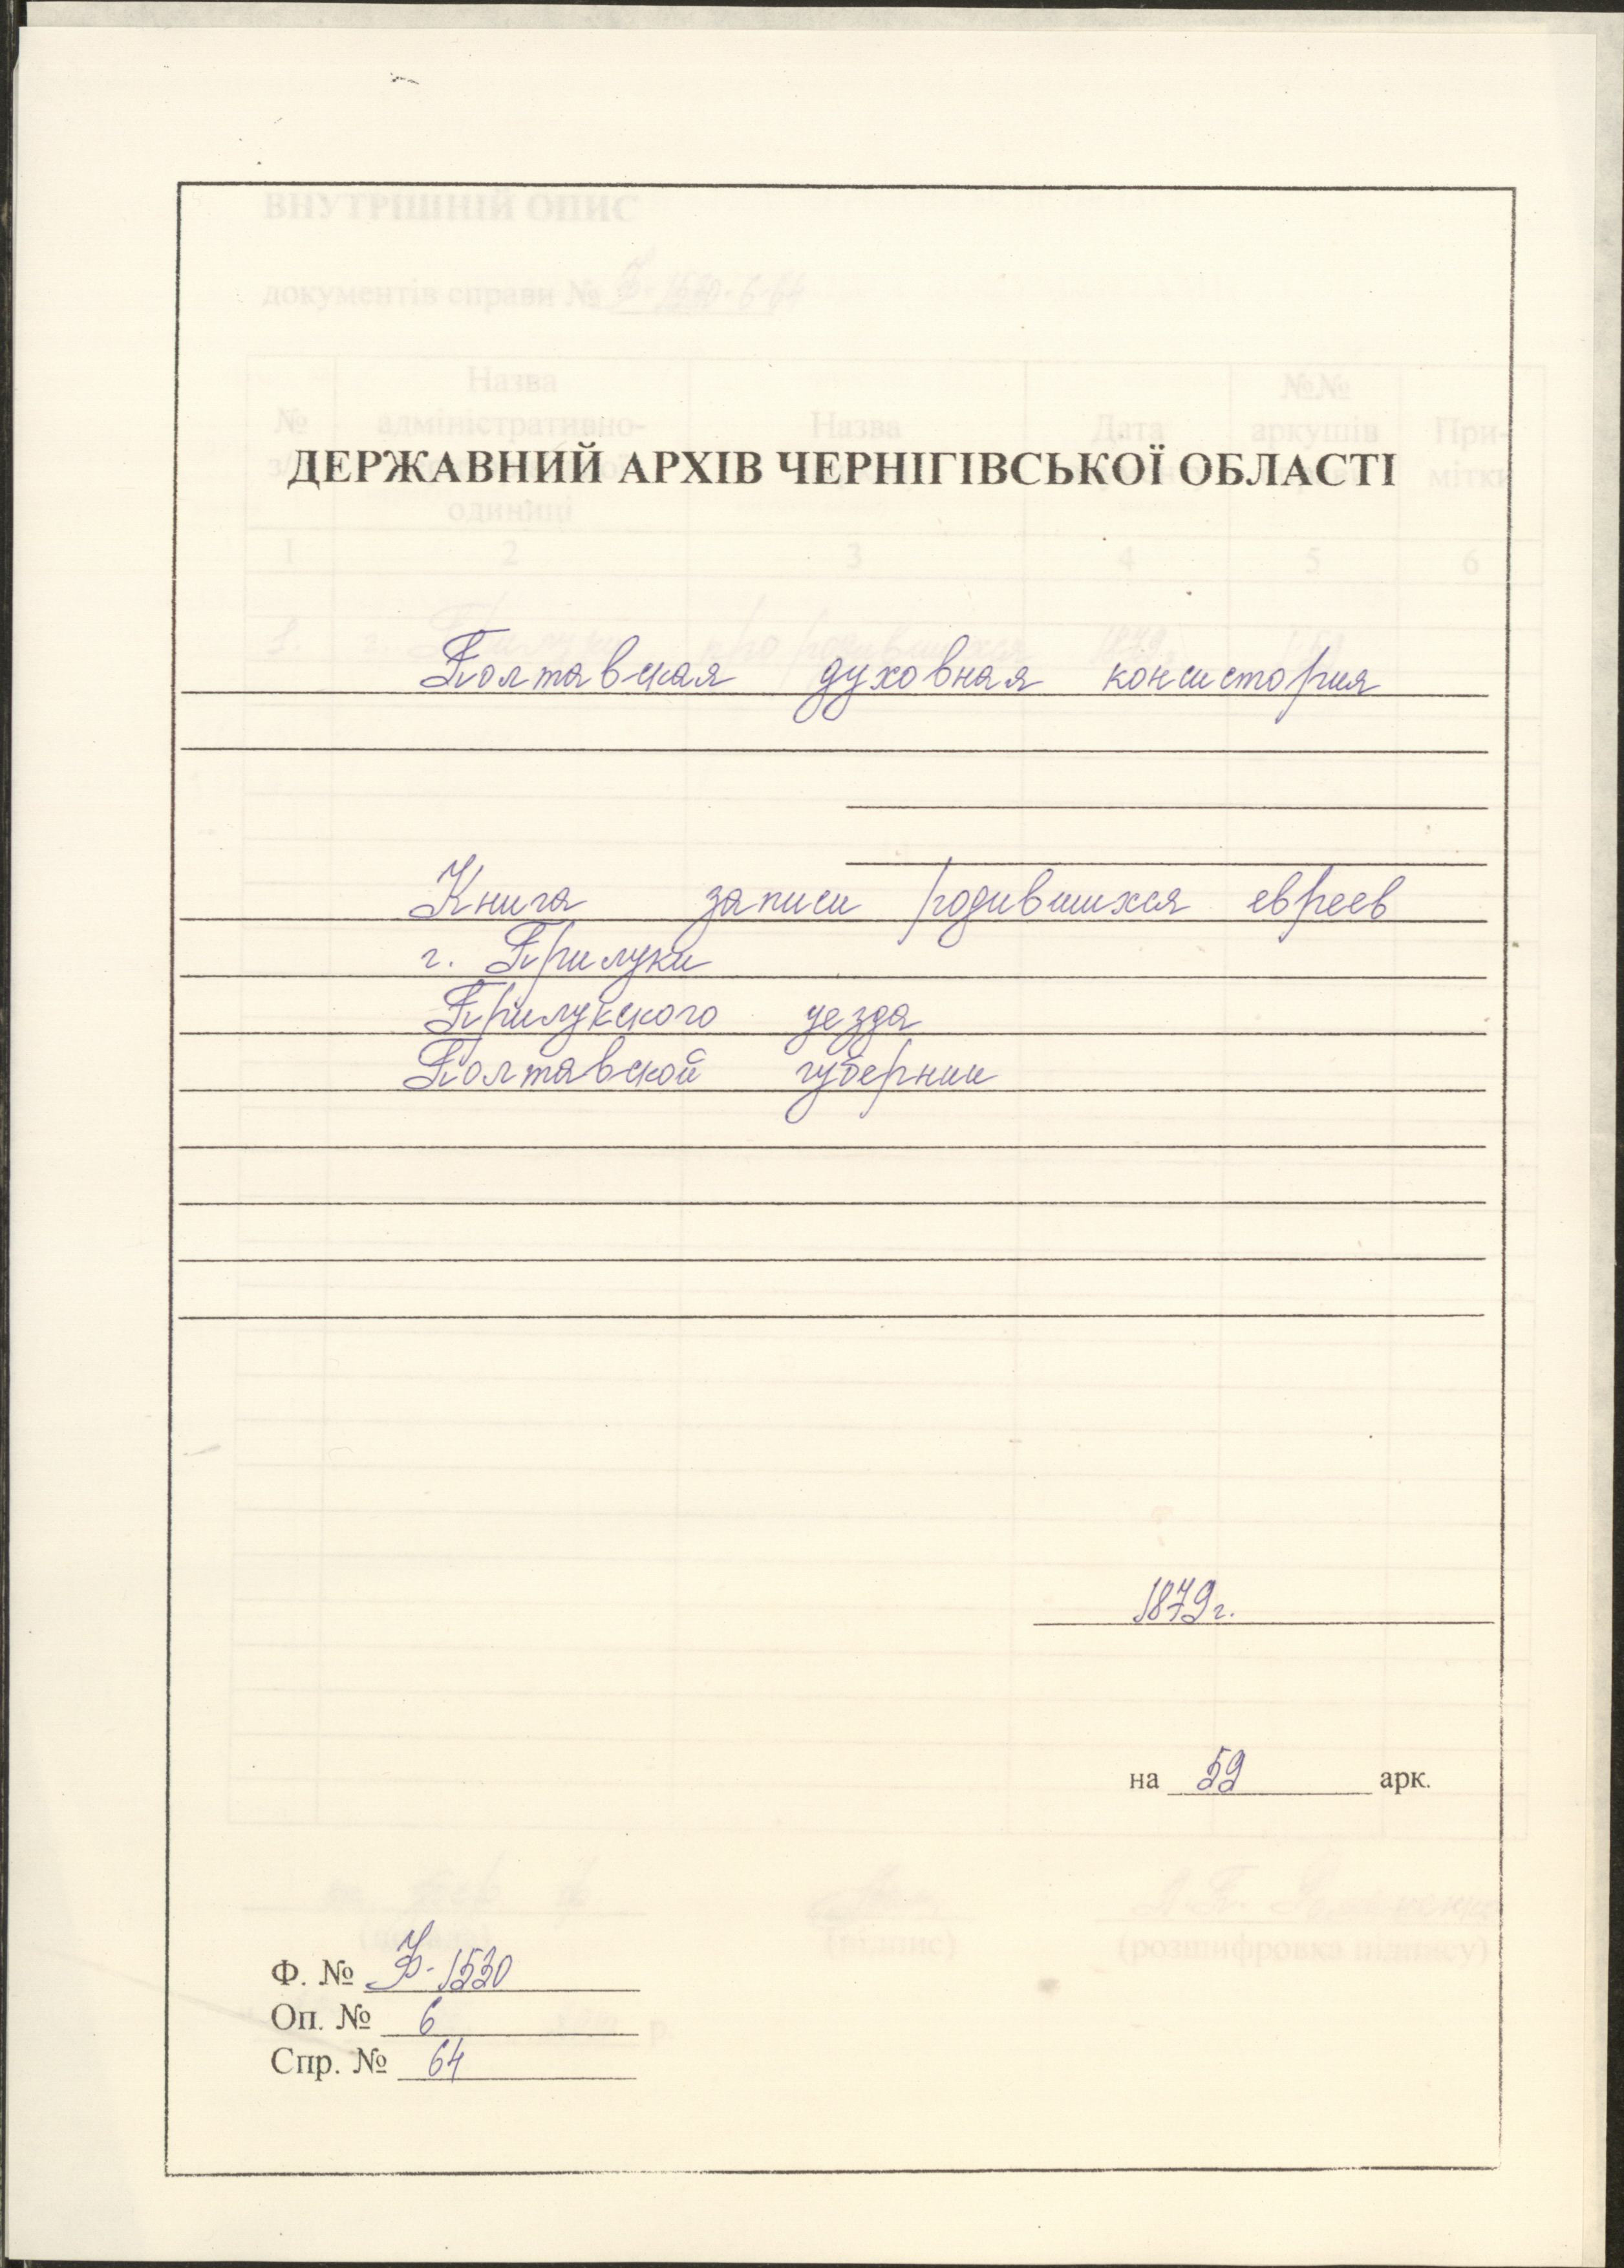 ДЕРЖАВНИЙ АРХІВ ЧЕРНІГІВСЬКОЇ ОБЛАСТІ
Полтавская духовная консистория
Книга записи родившихся евреев
г. Прилуки
Прилукского уезда
Полтавской губернии
1879 г.
на 59 арк.
Ф. № Ф-1530
Оп. № 6
Спр. № 64